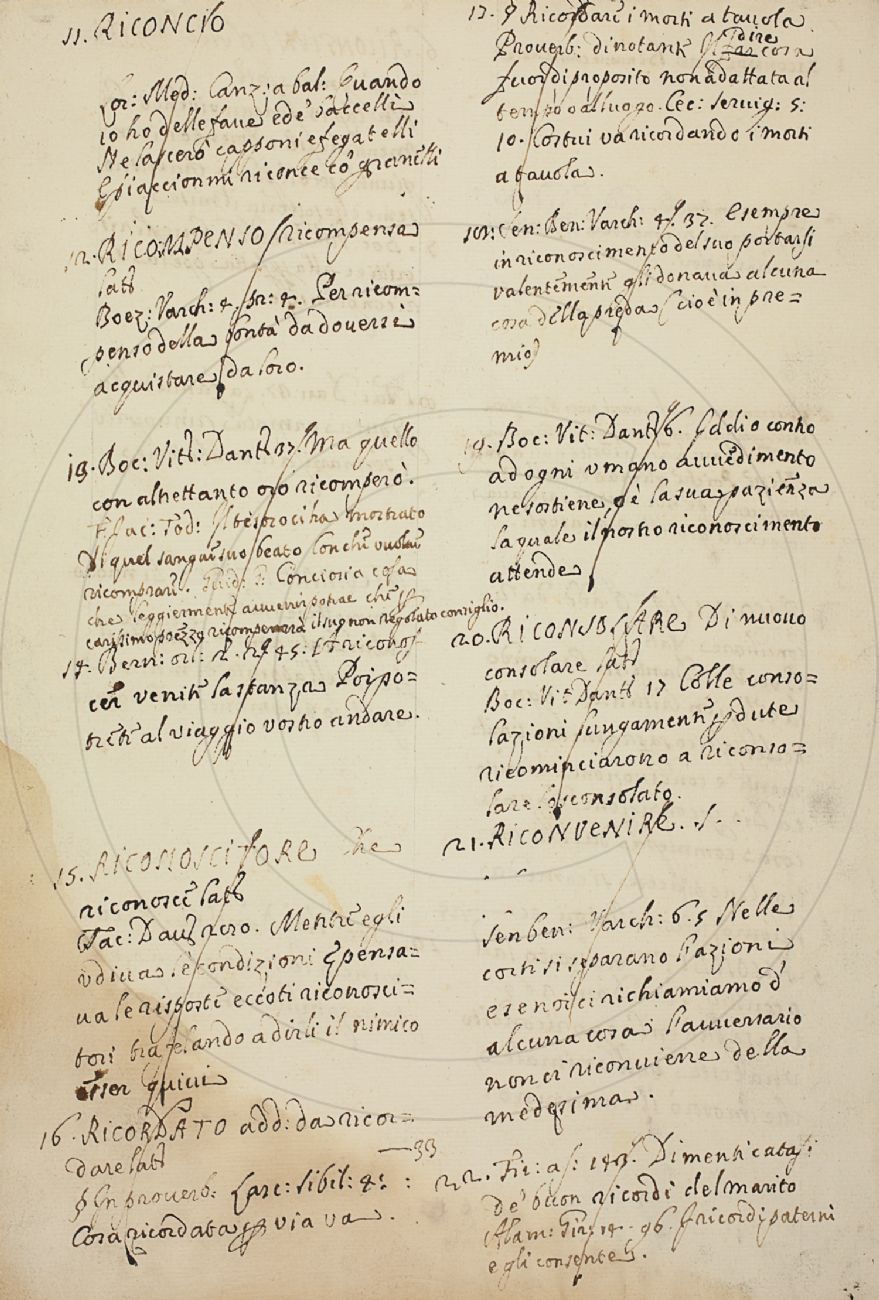 11. RICONCIO
Lor: Med: Canz: a bal: Quando
io ho delle fave ed e' baccelli
Ne lascerò capponi e fegatelli
E piaccionmi riconce co' granelli
12. RICOMPENSO ricompensa
Lat
Boez: Varch: 4. pr: 4. Per ricom=
penso della bontà da doversi
acquistare da loro.
13. Boc: Vit: Dant 37. Ma quello
con altrettanto oro ricomperò.
F. Iac: Tod: Il tesoro ci ha mostrato
Di quel sangue suo beato Con che
ricomprare. Guid: G: Conciosia cosa
che leggiermente avvenir potrae che p
carissimo prezzo ricomperrà il suo non regolato consiglio.
14. Bern: orl: 2. 45: riconos
cer venite la stanza Poi po=
trete al viaggio vostro andare.
15. RICONOSCITORE Che
riconosce Lat
Tac: Dav: Mentre egli
udiva le condizioni e pensa=
va le risposte eccoti riconosci=
tori trafelando a dirli il nimico
esser quivi
16. RICORDATO add: da ricor=
dare Lat
§ In proverb. Lasc: Sibil: 4: 33
Cosa ricordata per via va.
17. § Ricordare i morti a tavola
Proverb: dinotante Il dire cosa
fuor di proposito non adattata al
tempo o al luogo. Cec: Servig: 5:
10. Costui va ricordando i morti
a tavola.
18. Sen: Ben: Varch: 4. 37. E sempre
in riconoscimento del suo portarsi
valentemente gli donava alcuna
cosa della preda (cioè in pre=
mio)
19. Boc: Vit: Dant 6. Iddio contro
ad ogni umano avvedimento
ne sostiene, e è la sua pazienza
la quale il nostro riconoscimento
attende
20. RICONSOLARE Di nuovo
consolare Lat
Boc: Vit Dant 17 Colle conso=
lazioni lungamente perdute
ricominciarono a riconso=
lare lo sconsolato.
21. RICONVENIRE. S..
Sen ben: Varch: 6. 5 Nelle
corti si separano l'azioni
e se noi ci richiamiamo d'
alcuna cosa l'avversario
non ci riconviene della
medesima.
22. Fir: as: 143. Dimenticatasi
de' buon ricordi del marito
Alam: Gir: 14. 96. I ricordi paterni
egli consente.